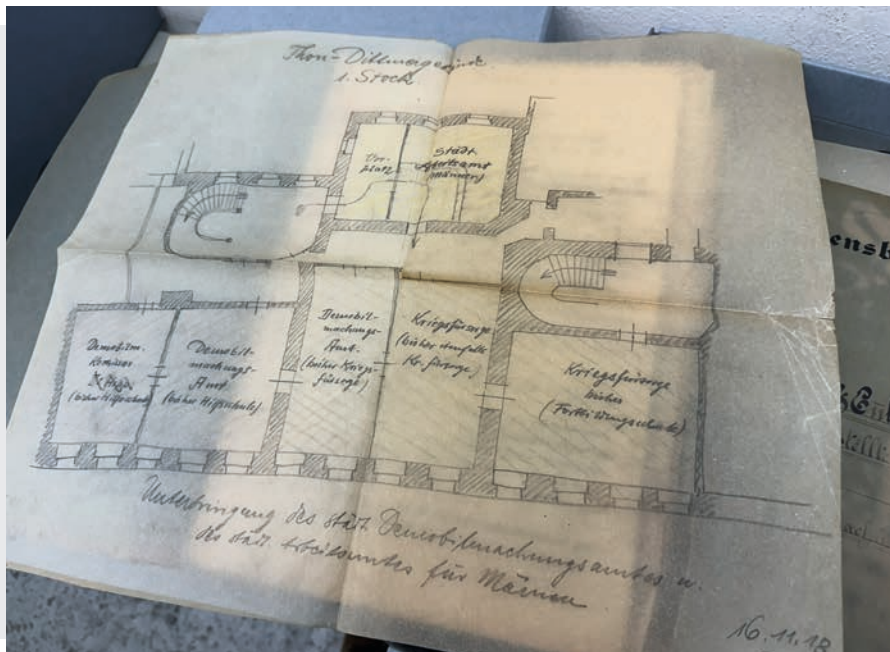 Thon-Dittmergebäude.
1. Stock
Vor-
platz
Städt.
Arbeitsamt
(Männer)
Demobilm.
(bisher Hilfsschule)
Demobil-
machungs-
Amt
(bisher Hilfsschule)
Demobil-
machungs-
Amt.
(bisher Kriegs-
fürsorge)
Kriegsfürsorge
(bisher ebenfalls
Kr. fürsorge)
Kriegsfürsorge
bisher
(Fortbildungsschule)
Unterbringung des städt. Demobilmachungsamtes u.
des städt. Arbeitsamtes für Männer
16.11.18
ensb